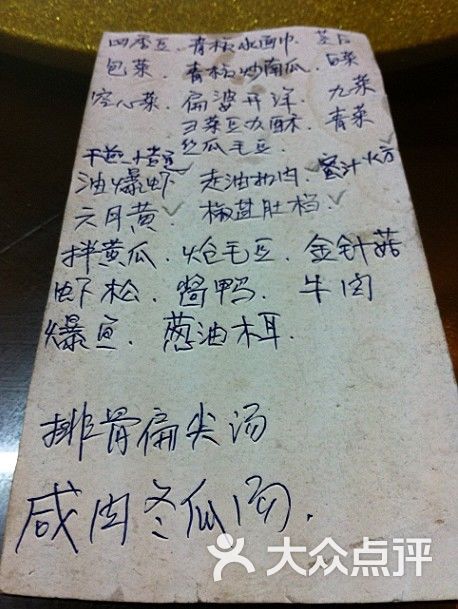 四季豆、青椒水面巾、茭白
包菜、青椒炒南瓜、白菜
空心菜、扁婆开洋、九菜
豆瓣酥 青菜
丝瓜毛豆、
油爆虾 走油扣肉 蜜汁火方
六月黄、椒盐肚档
拌黄瓜、炝毛豆、金针菇
虾松、酱鸭、牛肉
爆鱼、葱油木耳.
排骨扁尖汤
咸肉冬瓜汤.
大众点评